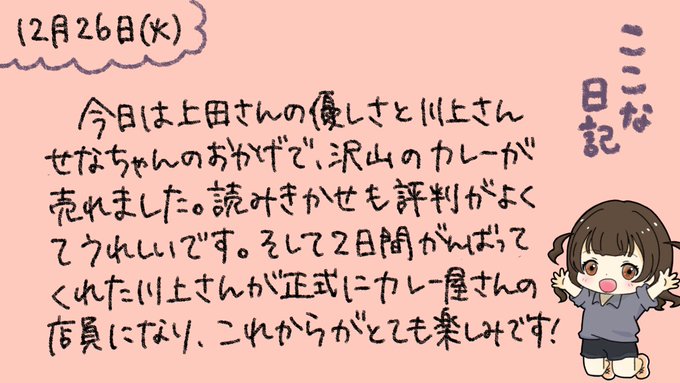 12月26日(火)
ここな
日記
今日は上田さんの優しさと川上さん
せなちゃんのおかげで、沢山のカレーが
売れました。読みきかせも評判がよく
てうれしいです。そして2日間がんばって
くれた川上さんが正式にカレー屋さんの
店員になり、これからがとても楽しみです!